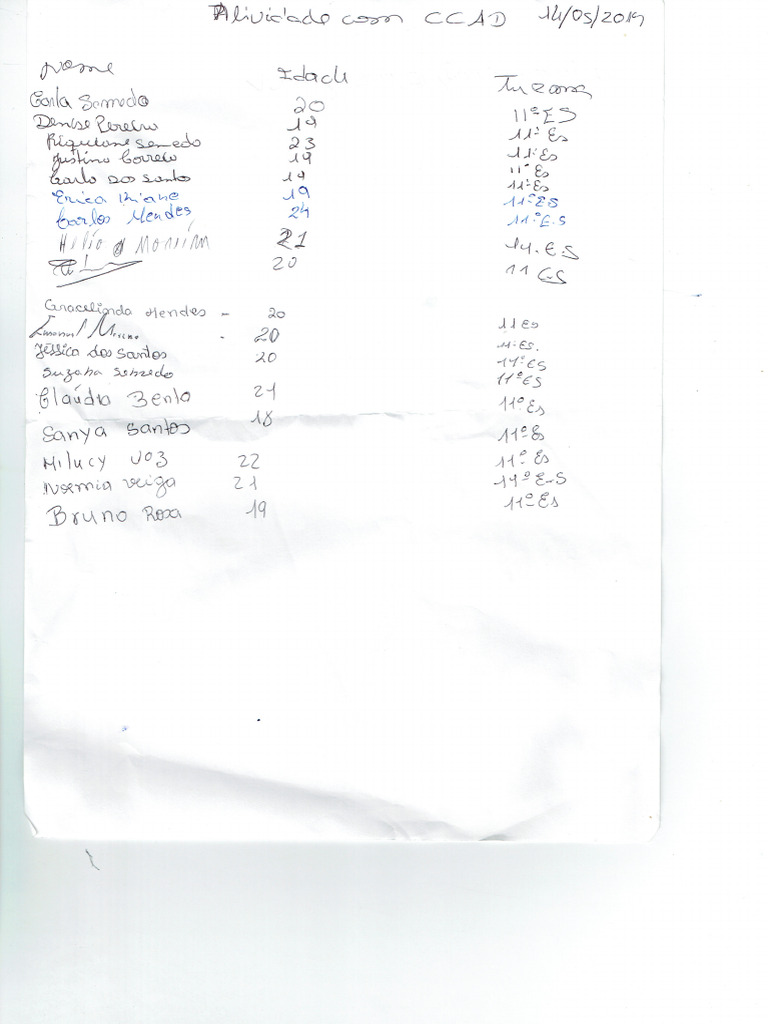 Atividade com CCAD 14/05/2019
Nome Idade Turma
Carla Semedo 20 11º ES
Denise Pereira 19 11º Es
Riquelene semedo 23 11º Es
Justino Correia 19 11º Es
Carlo Dos santo 19 11º Es
Erica 19 11º ES
Carlos Mendes 24 11º E.S
Hélio Moreira 21 11. E.S
20 11 ES
Gracelinda Mendes - 20 11 Es
20 11. ES.
Jéssica dos Santos 20 11º ES
Suzana Semedo 11º ES
Claúdia Bento 21 11º Es
Sanya Santos 18 11º Es
Milucy VOZ 22 11º Es
Noemia veiga 21 11º E-S
Bruno Rosa 19 11º Es